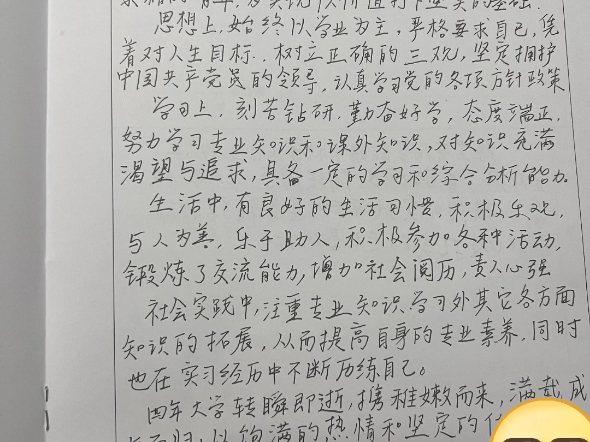 思想上,始终以学业为主,严格要求自己,凭
着对人生目标,树立正确的三观,坚定拥护
中国共产党员的领导,认真学习党的各项方针政策
学习上,刻苦钻研,勤奋好学,态度端正,
努力学习专业知识和课外知识,对知识充满
渴望与追求,具备一定的学习和综合分析能力。
生活中,有良好的生活习惯,积极乐观,
与人为善,乐于助人,积极参加各种活动,
锻炼了交流能力,增加社会阅历,责人心强
社会实践中,注重专业知识学习外其它各方面
知识的拓展,从而提高自身的专业素养,同时
也在实习经历中不断历练自己。
四年大学转瞬即逝,携稚嫩而来,满载成
以饱满的热情和坚定的